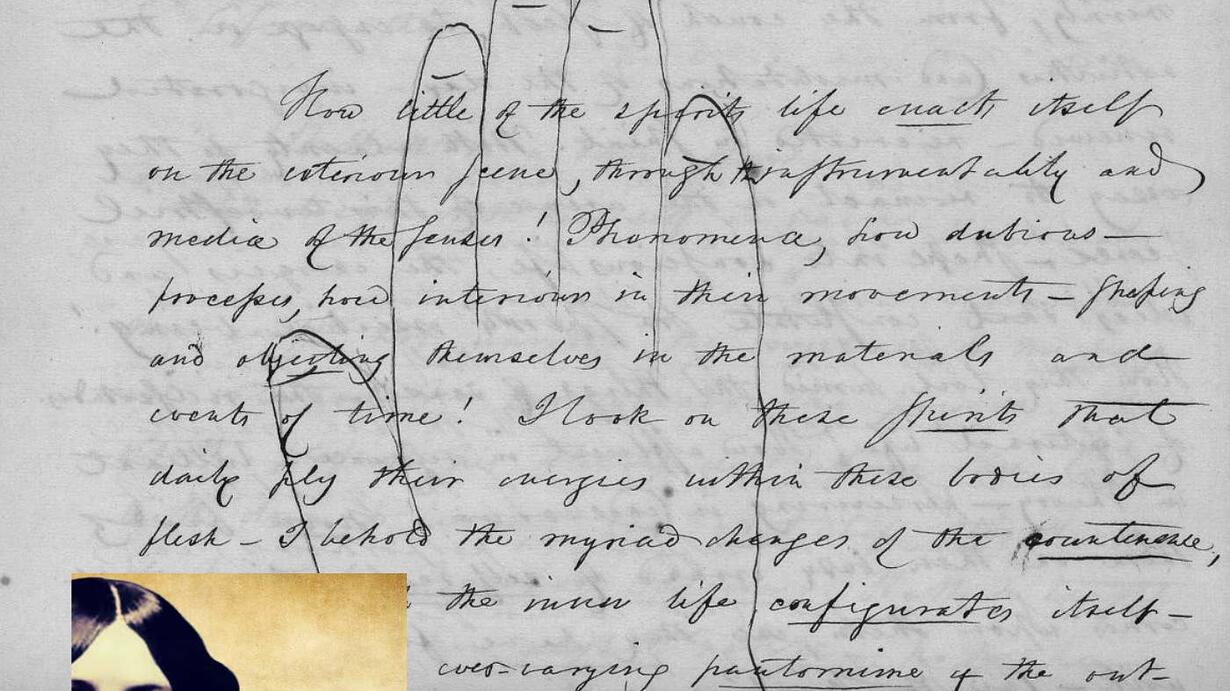 How little of the spirits life enact itself
on the exterious scene, through the instrumentality and
media of the senses! Phenomena, how dubious—
processes, how interious in their movements — shaping
and objecting themselves in the materials and
events of time! I look on these spirits that
daily ply their energies within these bodies of
flesh — I behold the myriad changes of the countenance,
the inner life configurates itself —
ever-varying pantomime of the out-